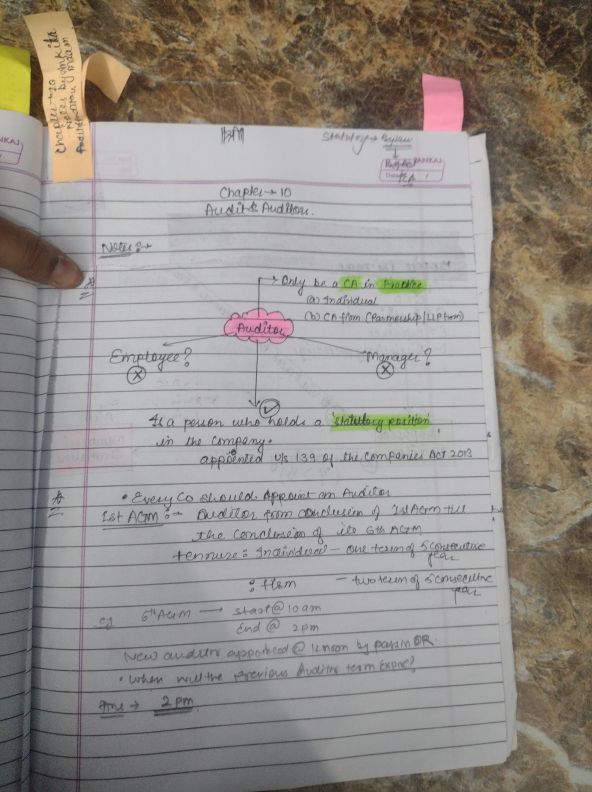 Chapter → 10
Notes by Ankita
Madam
NKAJ
Statutory →
PANKAJ
Chapter → 10
Audit & Auditors.
Notes :→
→ Only be a CA in Practice
(a) Individual
(b) CA firm (Partnership/LLP firm)
Auditor
Employee?
Manager?
Is a person who holds a 'statutory position'
in the company.
appointed u/s 139 of the Companies Act 2013
• Every Co should Appoint an Auditor
1st AGM :→ Auditor from conclusion of 1st AGM till
the conclusion of its 6th AGM
tennure : Individual - one term of 5 consecutive
year
: firm - two term of 5 consecutive
year
eg 6th AGM → start @ 10 am
End @ 2 pm
New auditor appointed @ 12 noon by passing OR.
• When will the previous Auditor term expire?
Ans → 2 pm.